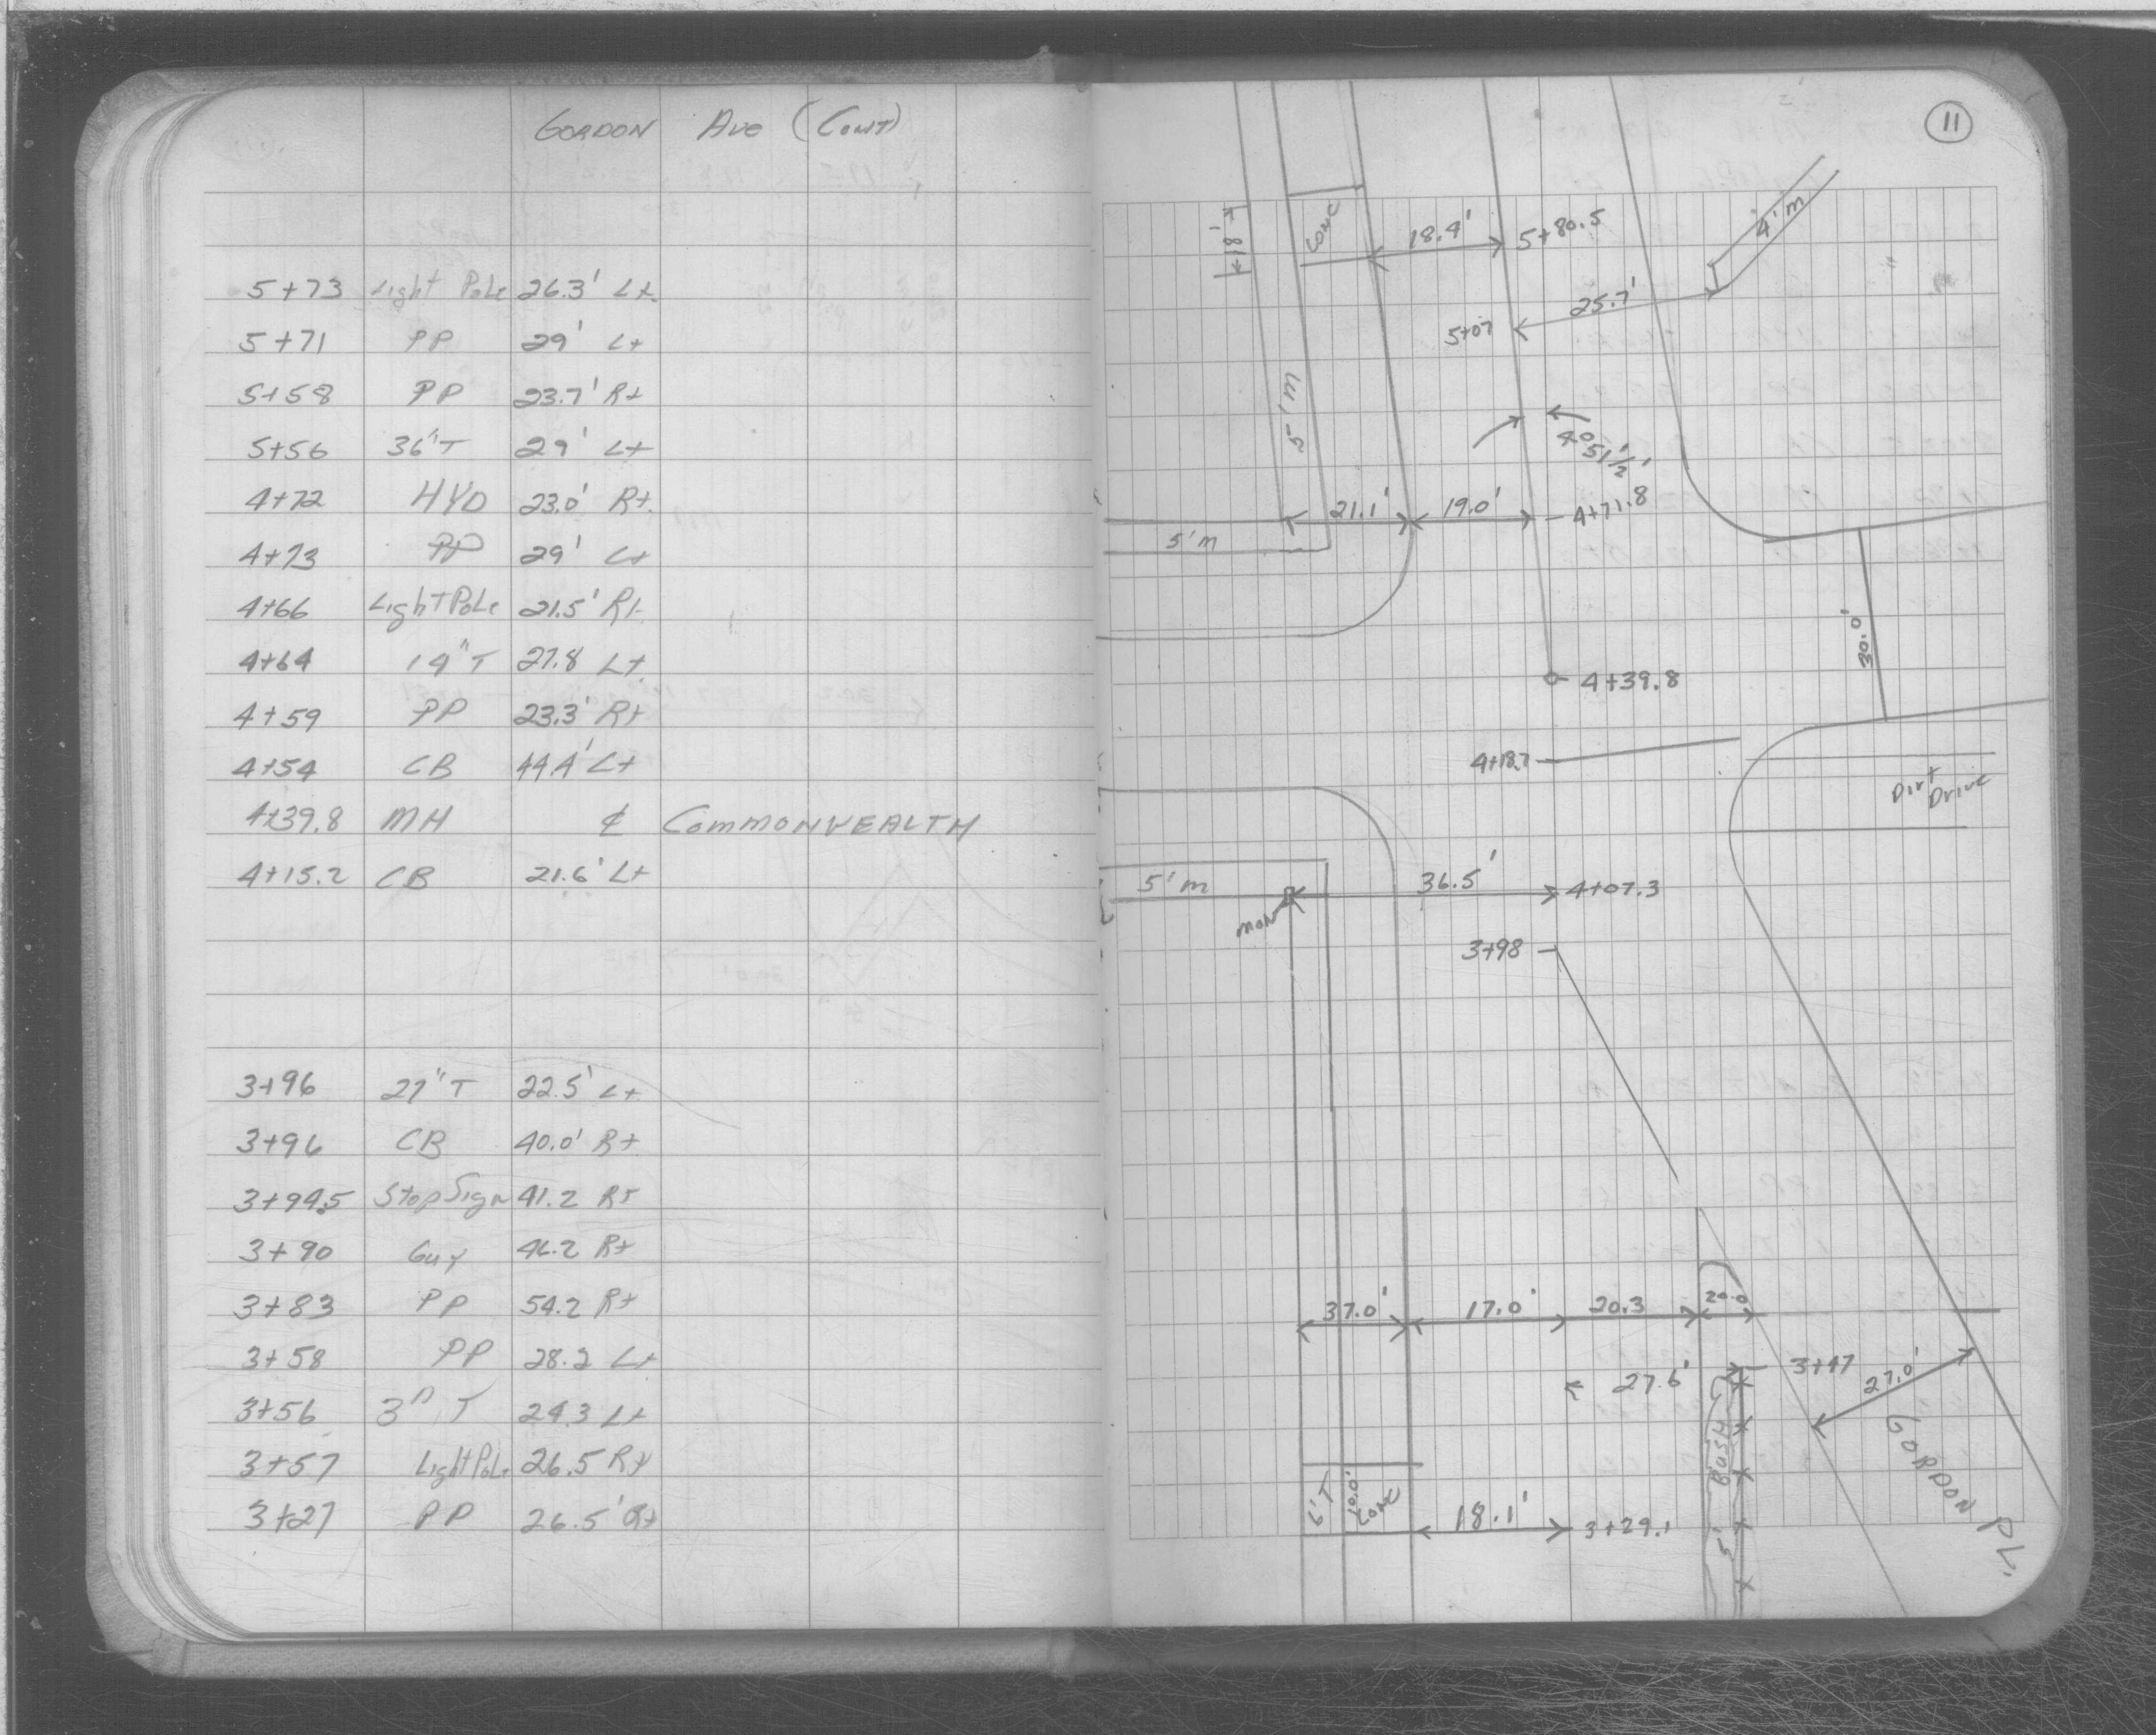 GORDON AVE (CONT)
5+73 Light Pole 26.3' Lt.
5+71 PP 29' Lt
5+58 PP 23.7' Rt
5+56 36"T 29' Lt
4+72 HYD 23.0' Rt.
4+73 PP 29' Lt
4+66 Light Pole 21.5' Rt
4+64 14"T 27.8 Lt.
4+59 PP 23.3' Rt
4+54 CB 44.4' Lt
4+39.8 MH ₵ COMMONWEALTH
4+15.2 CB 21.6' Lt
3+96 27"T 22.5' Lt
3+96 CB 40.0' Rt
3+94.5 Stop Sign 41.2 Rt
3+90 Guy 46.2 Rt
3+83 PP 54.2 Rt
3+58 PP 28.2 Lt
3+56 3"T 24.3 Lt
3+57 Light Pole 26.5 Rt
3+27 PP 26.5' Rt
11
18'
CONC
18.4'
5+80.5
4'm
25.7'
5+07
5'm
4°51½'
21.1'
19.0'
4+71.8
5'm
30.0'
4+39.8
4+18.7
Dirt Drive
5'm
36.5'
4+07.3
MON
3+98
37.0'
17.0'
20.3
20.0
27.6'
3+47
27.0'
GORDON PL.
5' BUSH
6'T
10.0' CONC
18.1'
3+29.1